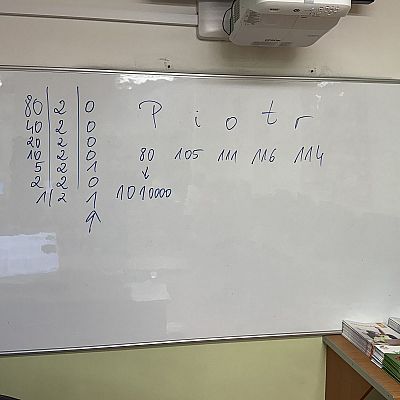 80 2 0
40 2 0
20 2 0
10 2 0
5 2 1
2 2 0
1 2 1
P i o t r
80 105 111 116 114
1010000